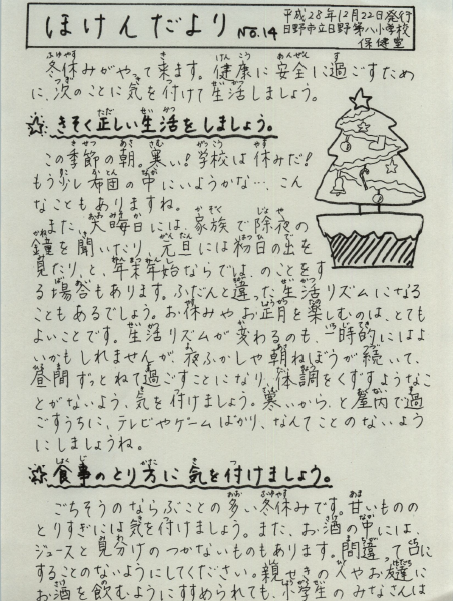 ほけんだより No.14
平成28年12月22日発行
日野市立日野第八小学校
保健室
冬休みがやって来ます。健康に安全に過ごすため
に、次のことに気を付けて生活しましょう。
きそく正しい生活をしましょう。
この季節の朝。寒い！学校は休みだ！
もう少し布団の中にいようかな…、こん
なこともありますね。
また、大晦日には、家族で除夜の
鐘を聞いたり、元旦には初日の出を
見たり、と、年末年始ならでは、のことをす
る場合もあります。ふだんと違った生活リズムになる
こともあるでしょう。お休みやお正月を楽しむのは、とても
よいことです。生活リズムが変わるのも、一時的にはよ
いかもしれませんが、夜ふかしや朝ねぼうが続いて、
昼間ずっとねて過ごすことになり、体調をくずすようなこ
とがないよう、気を付けましょう。寒いから、と屋内で過
ごすうちに、テレビやゲームばかり、なんてことのないよう
にしましょうね。
食事のとり方に気を付けましょう。
ごちそうのならぶことの多い冬休みです。甘いものの
とりすぎには気を付けましょう。また、お酒の中には、
ジュースと見分けのつかないものもあります。間違って口に
することのないようにしてください。親せきの人やお友達に
お酒を飲むようにすすめられても、小学生のみなさんは